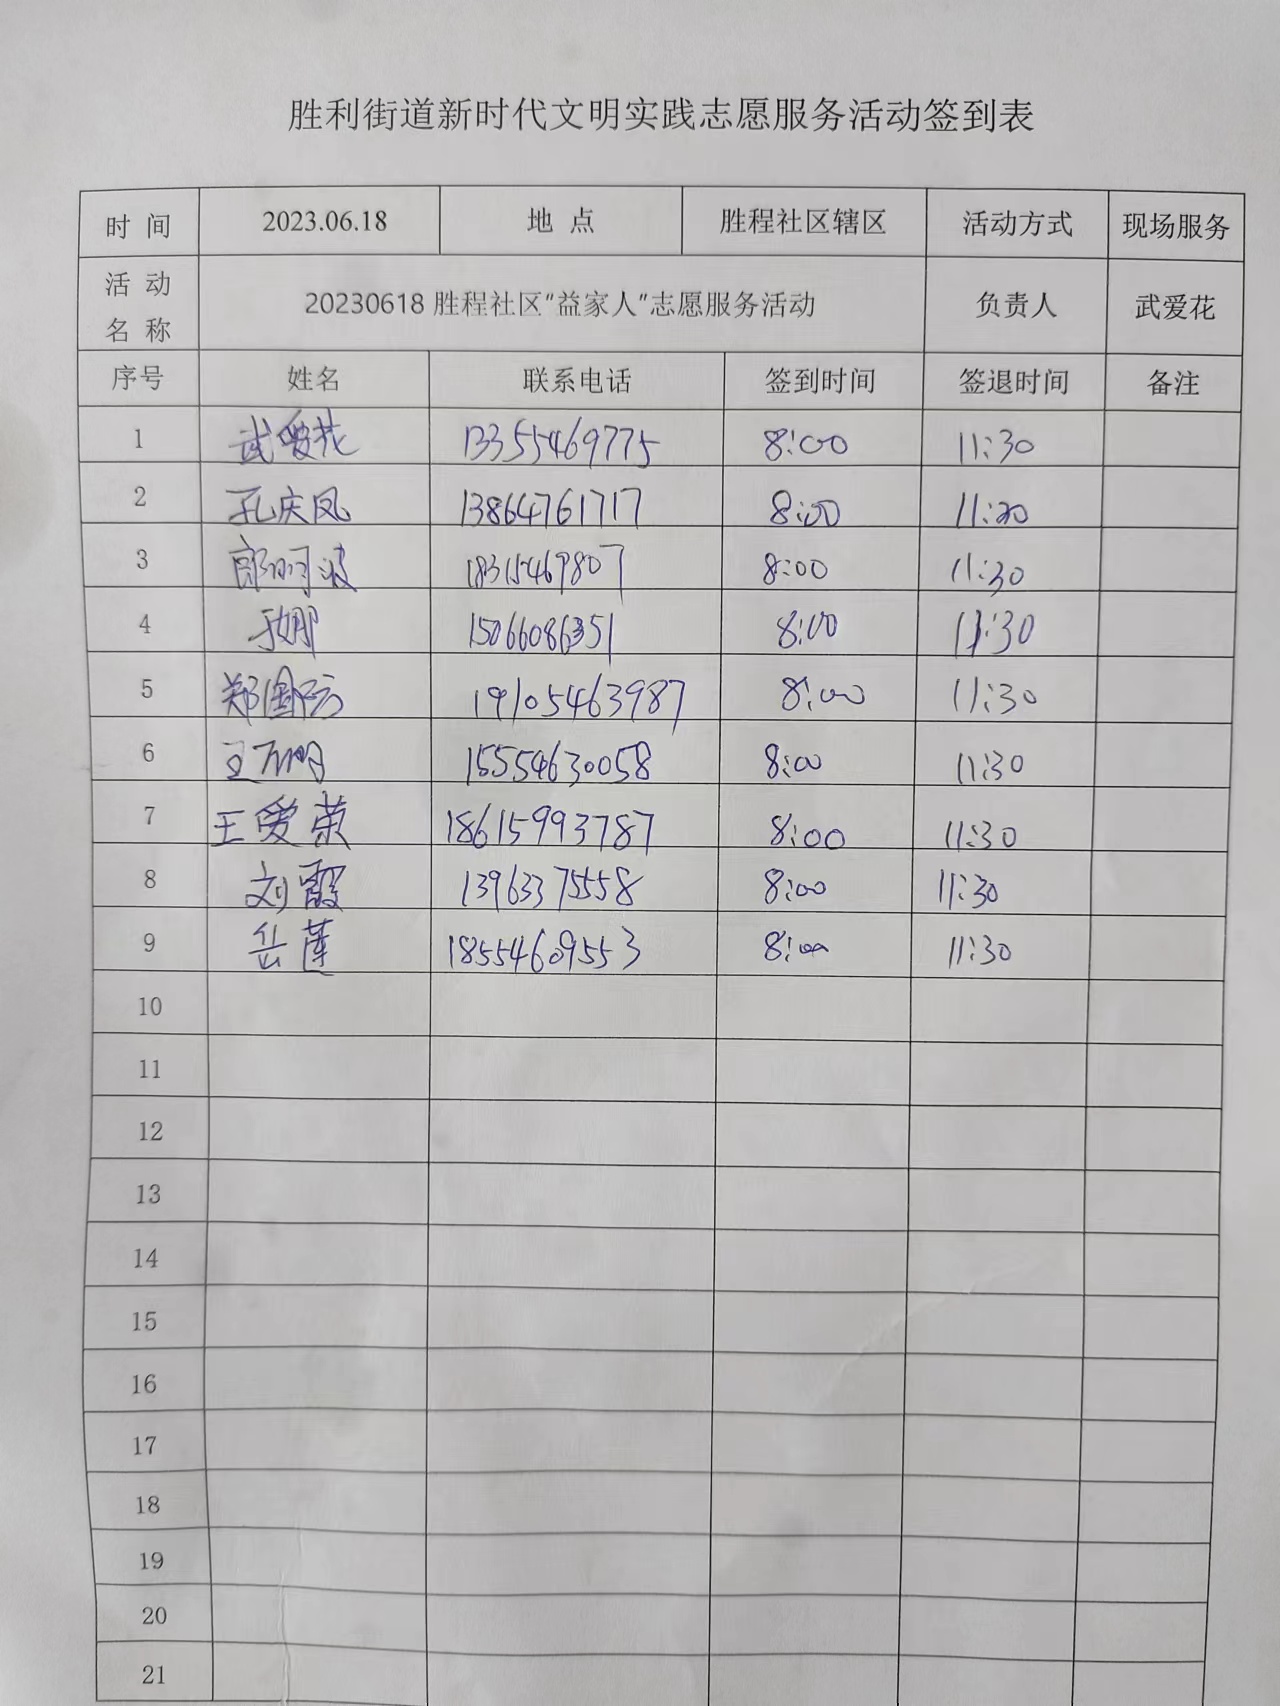 胜利街道新时代文明实践志愿服务活动签到表
时 间 2023.06.18 地 点 胜程社区辖区 活动方式 现场服务
活 动 名 称 20230618 胜程社区"益家人"志愿服务活动 负责人 武爱花
序号 姓名 联系电话 签到时间 签退时间 备注
1 武爱花 13355469775 8:00 11:30
2 孔庆凤 13864761717 8:00 11:30
3 郎明波 18315469807 8:00 11:30
4 于娜 15066086351 8:00 11:30
5 郑国防 19105463987 8:00 11:30
6 王万明 15554630058 8:00 11:30
7 王爱荣 18615993787 8:00 11:30
8 刘霞 13963375558 8:00 11:30
9 岳莲 18554609553 8:00 11:30
10
11
12
13
14
15
16
17
18
19
20
21